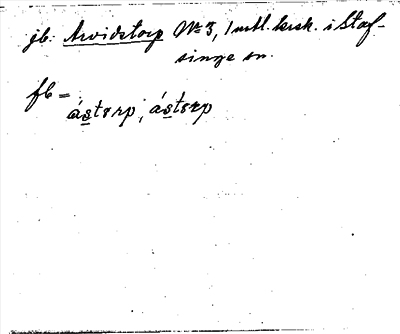 jb: Arvidstorp No 3, 1 mtl. krsk. i Staf-
singe sn.
fb =
ástorp, ástorp